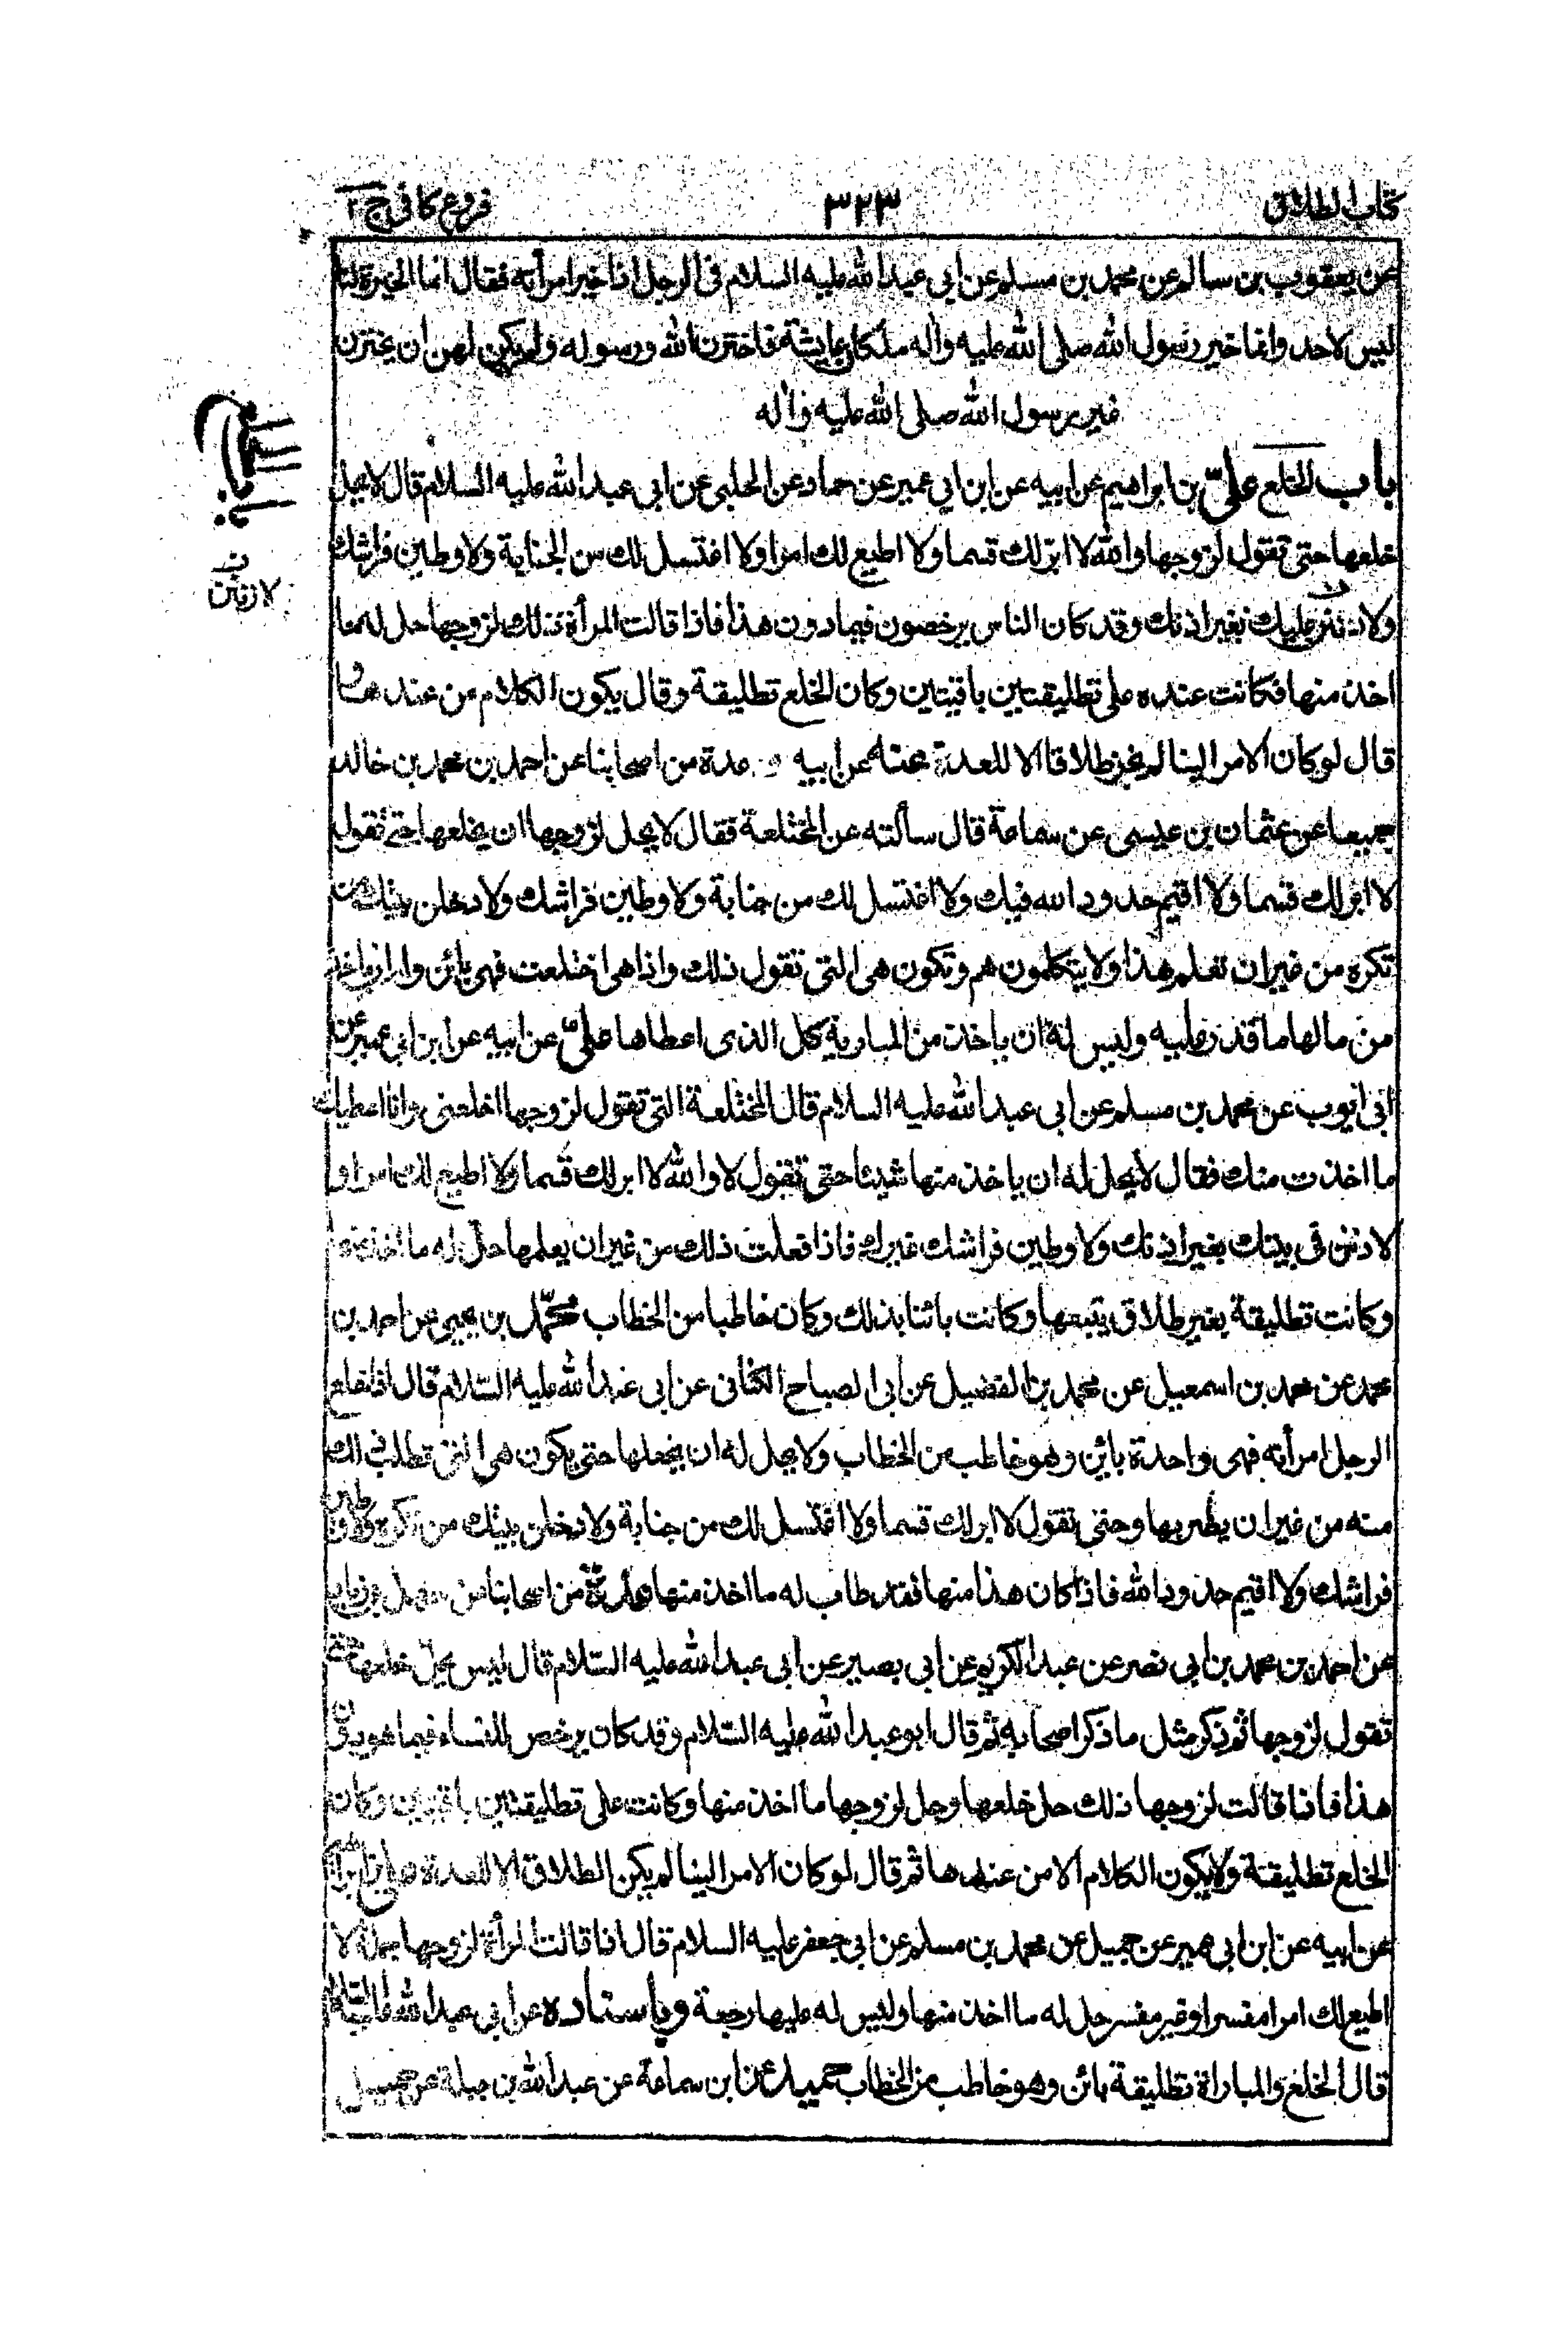 كتاب الطلاق
٣٢٣
فروع كافي ج ٢
عن يعقوب بن سالم عن محمد بن مسلم عن ابي عبد الله عليه السلام في الرجل اذا خير امرأته فقال انما الخيرة لنا
ليس لاحد وانما خير رسول الله صلى الله عليه واله لمكان عايشة فاخترن الله ورسوله ولم يكن لهن ان يخترن
غير رسول الله صلى الله عليه واله
باب الخلع علىّ بن ابراهيم عن ابيه عن ابن ابي عمير عن حماد عن الحلبي عن ابي عبد الله عليه السلام قال لا يحل
خلعها حتى تقول لزوجها والله لا ابرّ لك قسما ولا اطيع لك امرا ولا اغتسل لك من الجنابة ولاوطين فراشك
ولاذنن عليك بغير اذنك وقد كان الناس يرخصون فيما دون هذا فاذا قالت المرأة ذلك لزوجها حل له ما
اخذ منها فكانت عنده على تطليقتين باقيتين وكان الخلع تطليقة وقال يكون الكلام من عندها و
قال لو كان الامر الينا لم نجز طلاقا الا للعدة عنه عن ابيه و عدة من اصحابنا عن احمد بن محمد بن خالد
جميعا عن عثمان بن عيسى عن سماعة قال سألته عن المختلعة فقال لا يحل لزوجها ان يخلعها حتى تقول
لا ابر لك قسما ولا اقيم حدود الله فيك ولا اغتسل لك من جنابة ولاوطين فراشك ولادخلن بيتك من
تكره من غير ان تعلم هذا ولا يتكلمون هم وتكون هي التي تقول ذلك واذا هي اختلعت فهي بائن وله ان ياخذ
من مالها ما قدر عليه وليس له ان ياخذ من المبارية كل الذى اعطاها علىّ عن ابيه عن ابن ابي عمير عن
ابي ايوب عن محمد بن مسلم عن ابي عبد الله عليه السلام قال المختلعة التي تقول لزوجها اخلعني وانا اعطيك
ما اخذت منك فقال لا يحل له ان ياخذ منها شيئا حتى تقول لا والله لا ابر لك قسما ولا اطيع لك امرا و
لاذنن في بيتك بغير اذنك ولاوطين فراشك غيرك فاذا فعلت ذلك من غير ان يعلمها حل له ما اخذ منها
وكانت تطليقة بغير طلاق يتبعها وكانت بائنا بذلك وكان خاطبا من الخطاب محمّد بن يحيى عن احمد بن
محمد عن محمد بن اسمعيل عن محمد بن الفضيل عن ابي الصباح الكناني عن ابي عبد الله عليه السّلام قال اذا خلع
الرجل امرأته فهى واحدة بائن وهو خاطب من الخطاب ولا يحل له ان يخلعها حتى يكون هي التي تطلب ذلك
منه من غير ان يضر بها وحتى تقول لا ابر لك قسما ولا اغتسل لك من جنابة ولادخلن بيتك من تكره ولاوطين
فراشك ولا اقيم حدود الله فاذا كان هذا منها فقد طاب له ما اخذ منها عدة من اصحابنا عن سهل بن زياد
عن احمد بن محمد بن ابي نصر عن عبد الكريم عن ابي بصير عن ابي عبد الله عليه السّلام قال ليس يحل خلعها حتى
تقول لزوجها ثم ذكر مثل ما ذكر اصحابه ثم قال ابو عبد الله عليه السّلام وقد كان يرخص للنساء فيما هو دون
هذا فاذا قالت لزوجها ذلك حل خلعها وحل لزوجها ما اخذ منها وكانت على تطليقتين باقيتين وكان
الخلع تطليقة ولا يكون الكلام الا من عندها ثم قال لو كان الامر الينا لم يكن الطلاق الا للعدة على بن ابراهيم
عن ابيه عن ابن ابي عمير عن جميل عن محمد بن مسلم عن ابي جعفر عليه السلام قال اذا قالت المرأة لزوجها جملة لا
اطيع لك امرا مفسرا او غير مفسر حل له ما اخذ منها وليس له عليها رجعة وباسناده عن ابي عبد الله عليه السّلام
قال الخلع والمباراة تطليقة بائن وهو خاطب من الخطاب حميد عن ابن سماعة عن عبد الله بن جبلة عن جميل
ن
لازنين